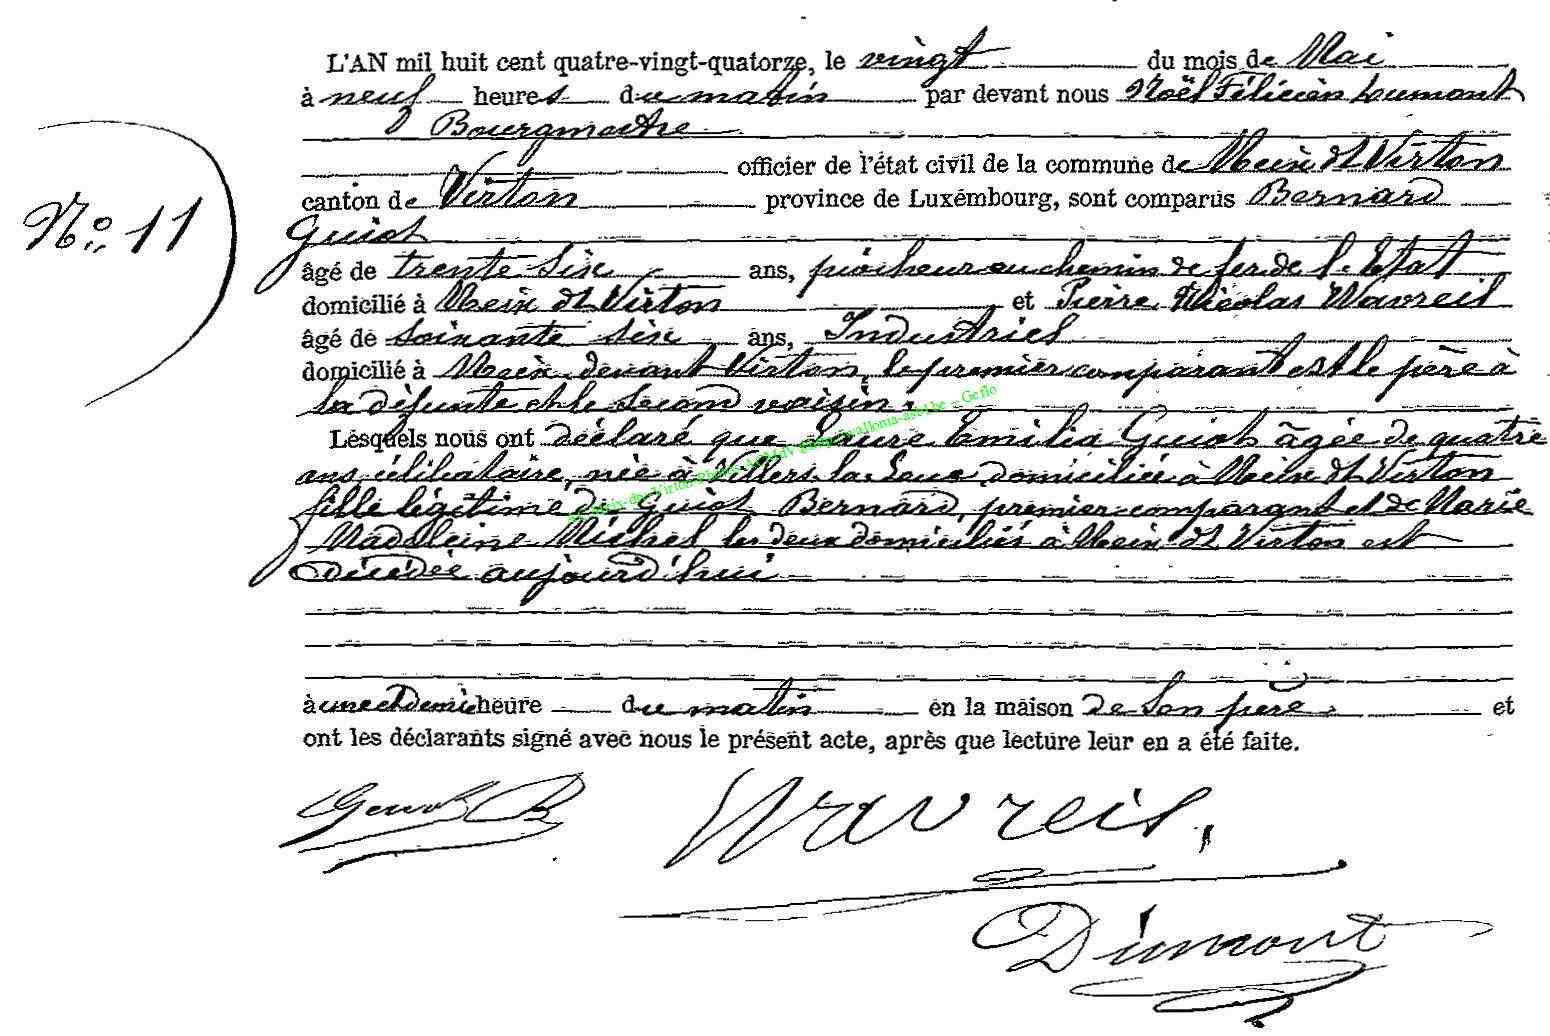 L'AN mil huit cent quatre-vingt-quatorze, le vingt du mois de Mai
à neuf heures du matin par devant nous Noël Félicien Dumont
Bourgmestre
officier de l'état civil de la commune de Meix dt Virton
N° 11
canton de Virton province de Luxembourg, sont comparus Bernard
Guiot
âgé de trente six ans, piocheur au chemin de fer de l'Etat
domicilié à Meix dt Virton et Pierre Nicolas Wavreil
âgé de soixante six ans, Industriel
domicilié à Meix devant Virton, le premier comparant est le père à
la défunte et le second voisin.
Lesquels nous ont déclaré que Laure Emilia Guiot âgée de quatre
ans, célibataire, née à Villers la Loue domiciliée à Meix dt Virton
fille légitime de Guiot Bernard, premier comparant et de Marie
Madeleine Michel les deux domiciliés à Meix dt Virton est
décédée aujourd'hui
à une et demi heure du matin en la maison de son père. et
ont les déclarants signé avec nous le présent acte, après que lecture leur en a été faite.
Guiot B
Wavreil.
Dumont